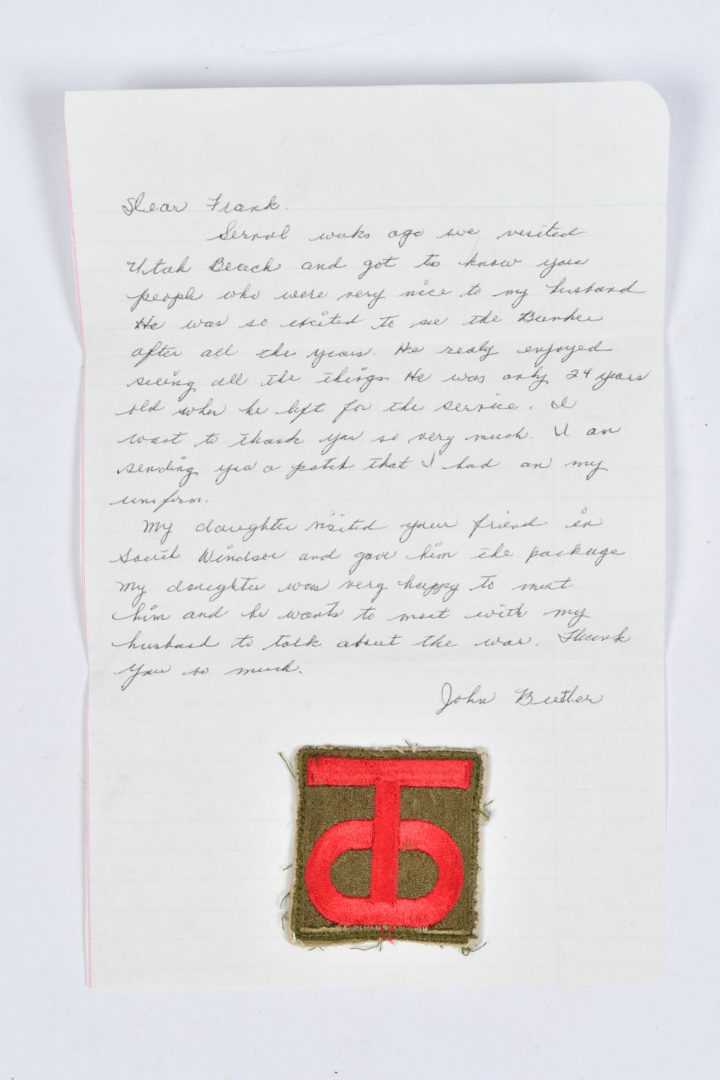 Dear Frank.
Servol weeks ago we visited
Utah Beach and got to know you
people who were very nice to my husband
He was so excited to see the Bunker
after all the years. He realy enjoyed
seeing all the things. He was only 24 years
old when he left for the service. I
want to thank you so very much. I am
sending you a patch that I had on my
uniform.
My daughter visited your friend in
South Windsor and gave him the package
My daughter was very happy to meet
him and he wants to meet with my
husband to talk about the war. Thank
You so much.
John Butler
TO